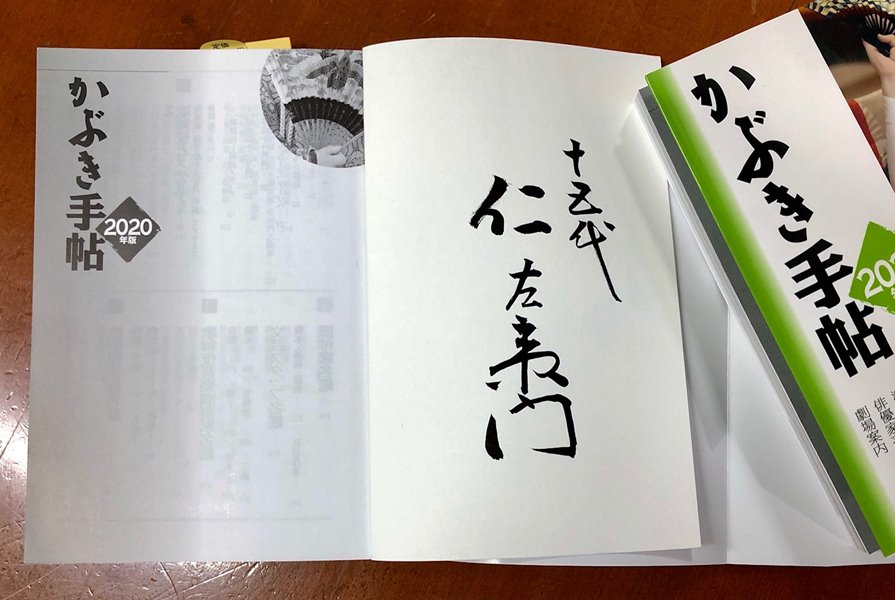 定価
かぶき手帖
2020
年版
十五代
仁左衛門
かぶき手帖
俳優家
劇場案内